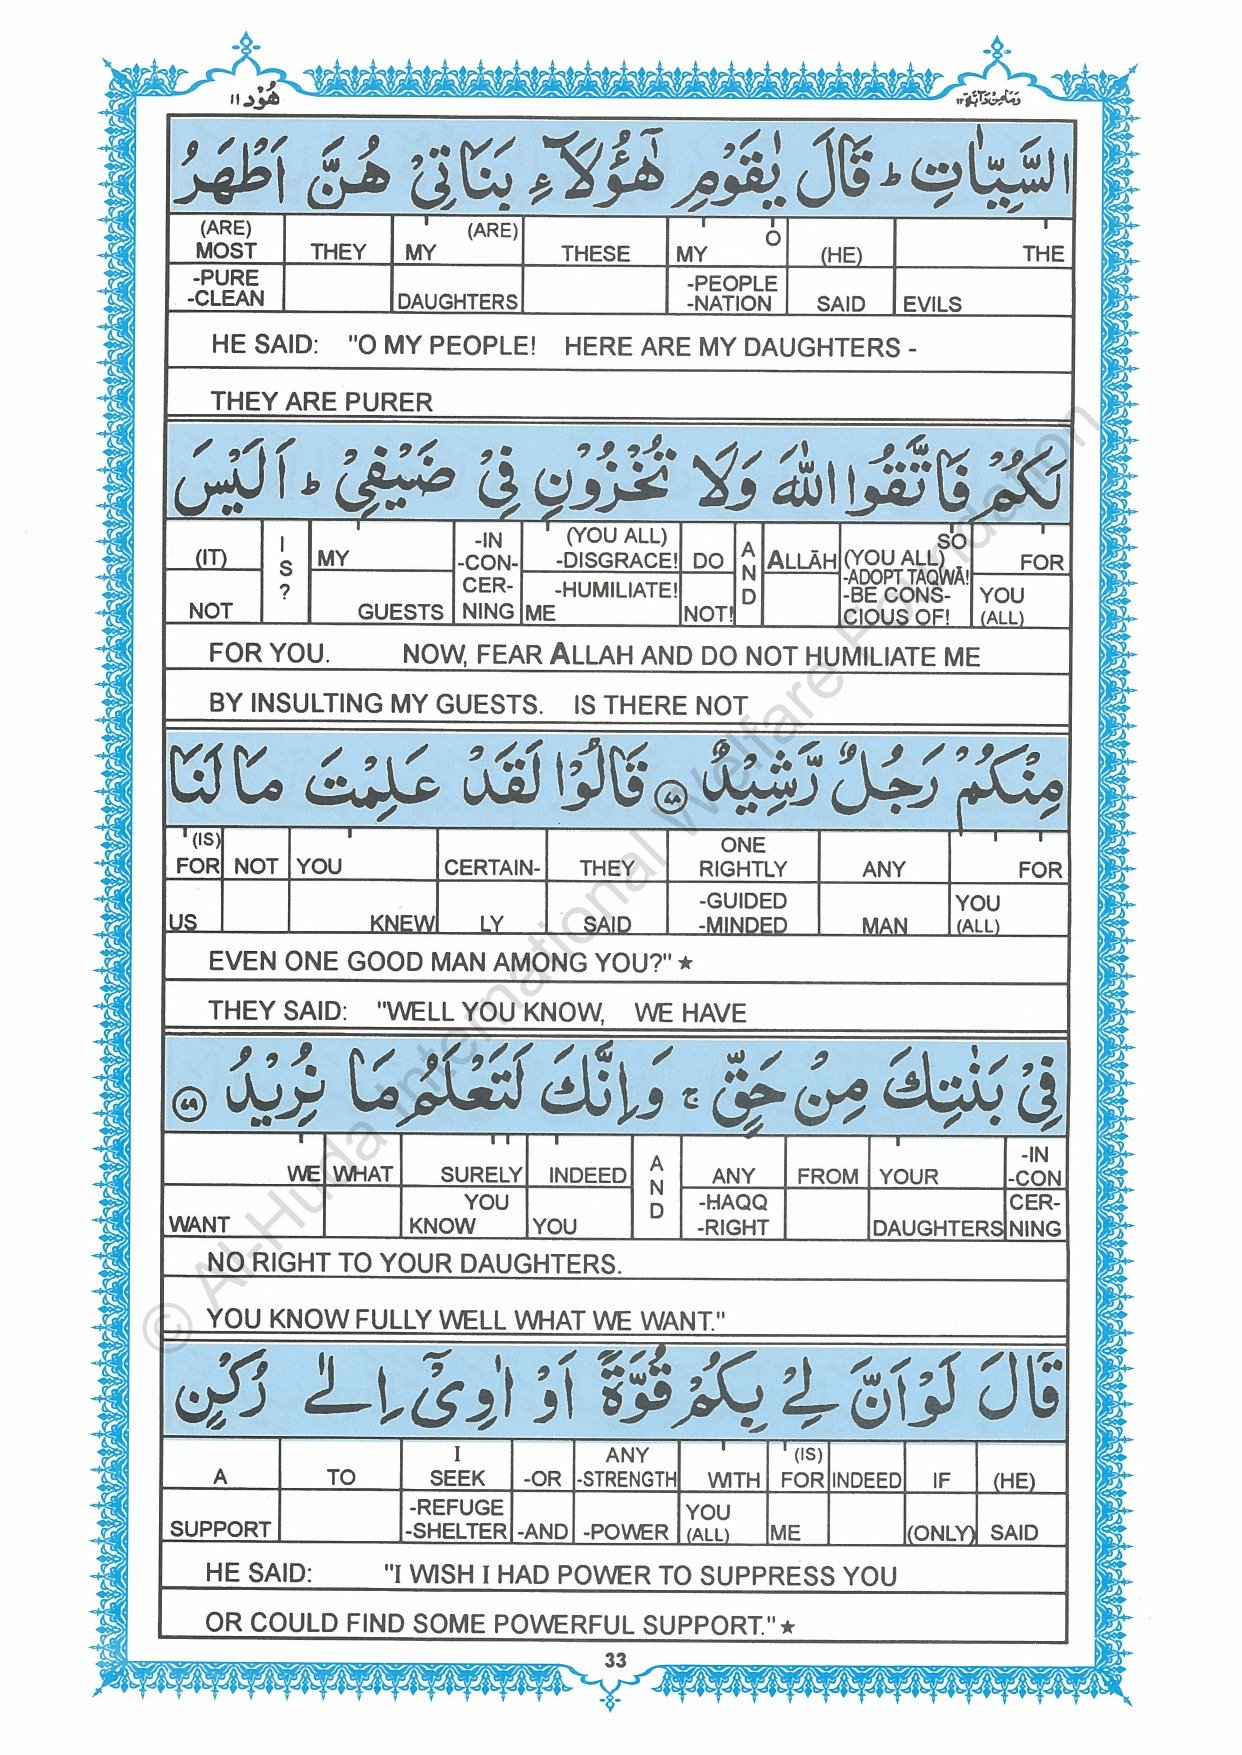 هُوْد ١١
وَمَا مِنْ دَآبَّة ١٢
السَّيِّاٰتِ ؕ قَالَ يٰقَوْمِ هٰٓؤُلَآءِ بَنَاتِیْ هُنَّ اَطْهَرُ
(ARE) MOST THEY MY (ARE) THESE MY O (HE) THE
-PURE -CLEAN DAUGHTERS -PEOPLE -NATION SAID EVILS
HE SAID: "O MY PEOPLE! HERE ARE MY DAUGHTERS -
THEY ARE PURER
لَكُمْ فَاتَّقُوا اللّٰهَ وَلَا تُخْزُوْنِ فِیْ ضَيْفِیْ ؕ اَلَيْسَ
(IT) I S ? MY -IN -CON- CER- NING (YOU ALL) -DISGRACE! DO A N D ALLĀH SO (YOU ALL) -ADOPT TAQWĀ! FOR
NOT GUESTS -HUMILIATE! ME NOT! -BE CONS- CIOUS OF! YOU (ALL)
FOR YOU. NOW, FEAR ALLAH AND DO NOT HUMILIATE ME
BY INSULTING MY GUESTS. IS THERE NOT
مِنْكُمْ رَجُلٌ رَّشِيْدٌ ﴿٧٨﴾ قَالُوْا لَقَدْ عَلِمْتَ مَا لَنَا
(IS) FOR NOT YOU CERTAIN- THEY ONE RIGHTLY ANY FOR
US KNEW LY SAID -GUIDED -MINDED MAN YOU (ALL)
EVEN ONE GOOD MAN AMONG YOU?" ★
THEY SAID: "WELL YOU KNOW, WE HAVE
فِیْ بَنٰتِكَ مِنْ حَقٍّ ۚ وَاِنَّكَ لَتَعْلَمُ مَا نُرِيْدُ ﴿٧٩﴾
WE WHAT SURELY INDEED A N D ANY FROM YOUR -IN -CON
WANT YOU KNOW YOU -HAQQ -RIGHT DAUGHTERS CER- NING
NO RIGHT TO YOUR DAUGHTERS.
YOU KNOW FULLY WELL WHAT WE WANT."
قَالَ لَوْ اَنَّ لِیْ بِكُمْ قُوَّةً اَوْ اٰوِیْۤ اِلٰى رُكْنٍ
A TO I SEEK -OR ANY -STRENGTH WITH (IS) FOR INDEED IF (HE)
SUPPORT -REFUGE -SHELTER -AND -POWER YOU (ALL) ME (ONLY) SAID
HE SAID: "I WISH I HAD POWER TO SUPPRESS YOU
OR COULD FIND SOME POWERFUL SUPPORT." ★
33
© Al-Huda International Welfare Foundation